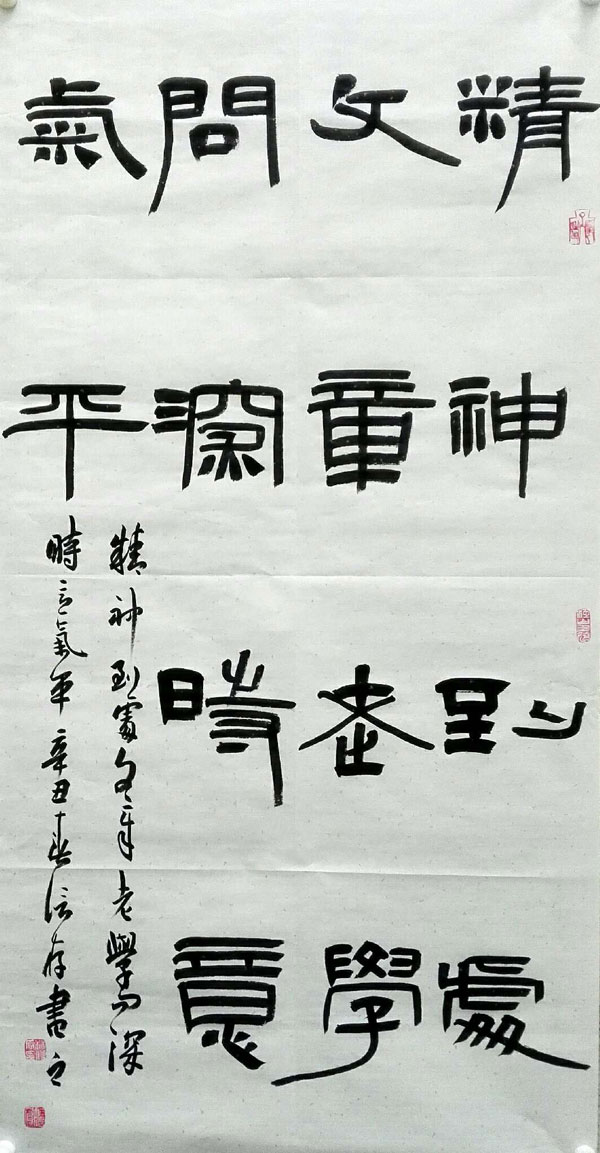 精神到處
文章老學
問深時意
氣平
精神到處文章老學問深
時意氣平辛丑春信存書之